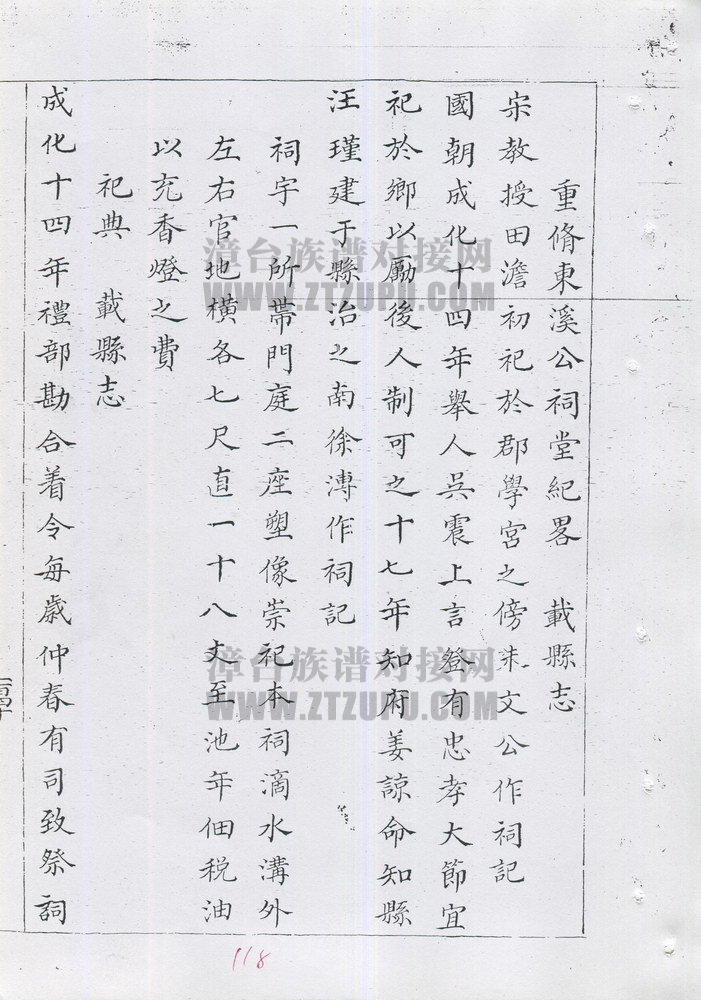 重脩東溪公祠堂紀畧　載縣志
宋教授田澹初祀於郡學宮之傍朱文公作祠記
國朝成化十四年舉人吳震上言登有忠孝大節宜
祀於鄉以勵後人制可之十七年知府姜諒命知縣
汪瑾建于縣治之南徐溥作祠記
祠宇一所帶門庭二座塑像崇祀本祠滴水溝外
左右官地橫各七尺直一十八丈至池年佃税油
以充香燈之費
祀典　載縣志
成化十四年禮部勘合着令每歲仲春有司致祭詞
漳台族谱对接网
WWW.ZTZUPU.COM
漳台族谱对接网
WWW.ZTZUPU.COM
118